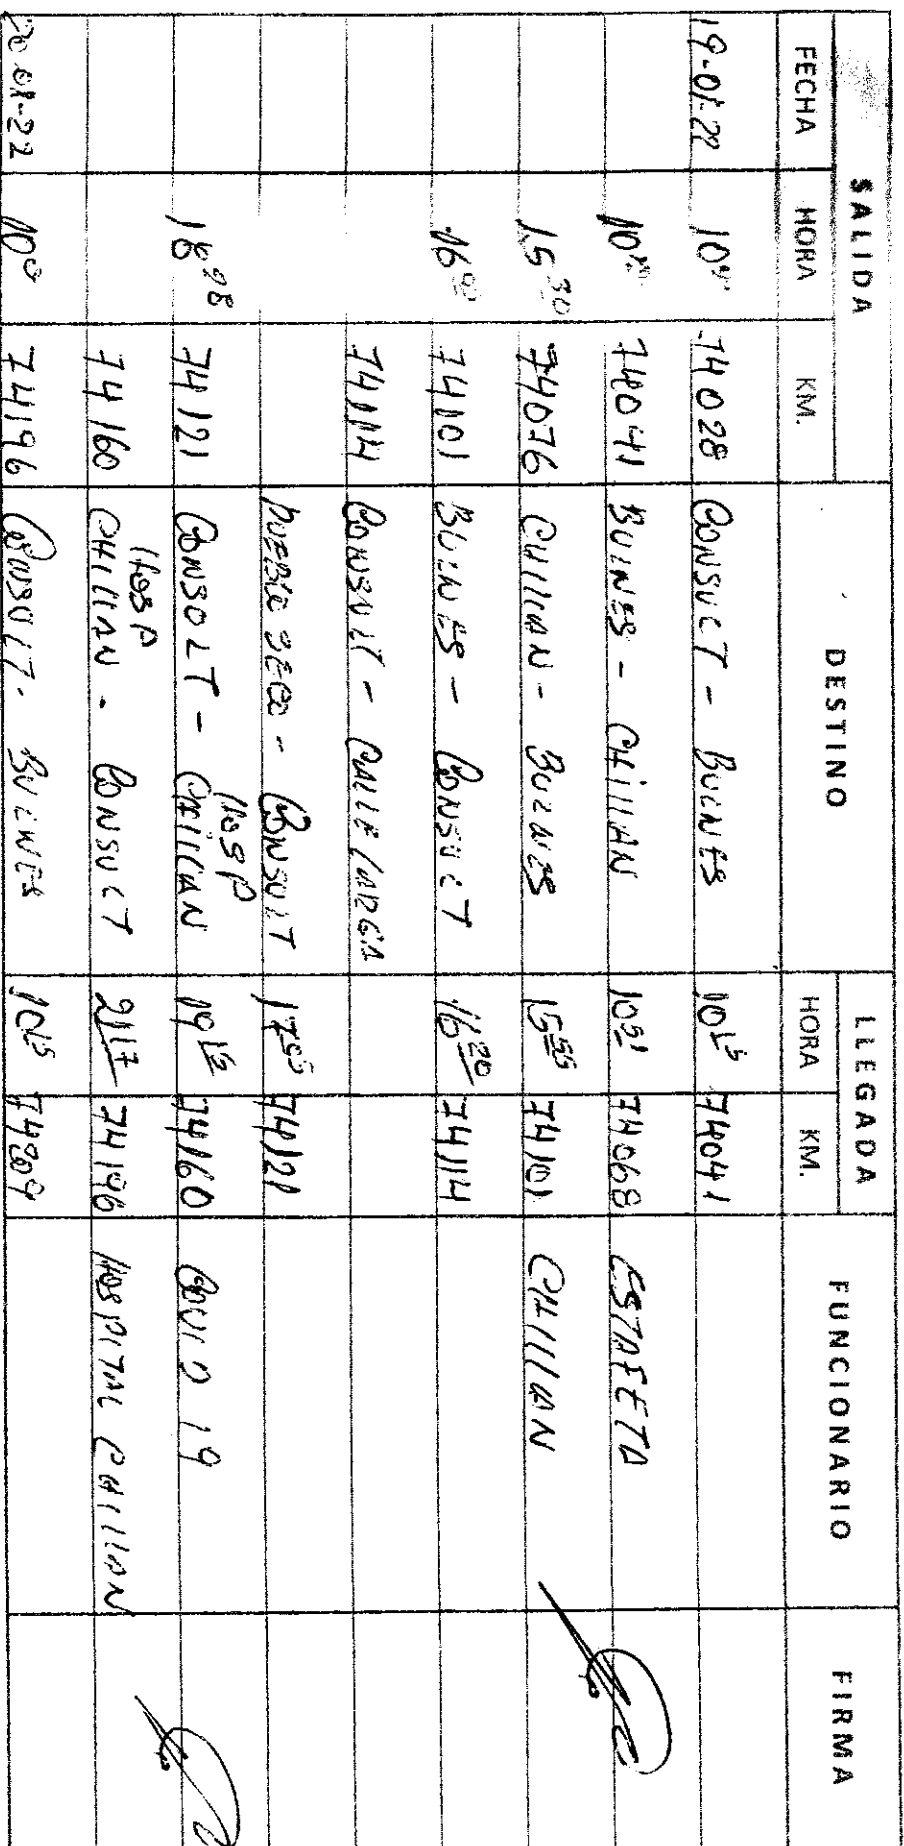 SALIDA DESTINO LLEGADA FUNCIONARIO FIRMA
FECHA HORA KM. HORA KM.
19-01-22 10 74028 CONSULT - BULNES 10 15 74041
10 74041 BULNES - CHILLAN 10 51 74068 ESTAFETA
15 30 74076 CHILLAN - BULNES 15 55 74101 CHILLAN
16 00 74101 BULNES - CONSULT 16 20 74114
74114 CONSULT - CALLE LARGA
PUEBLO SECO - CONSULT 17 05 74121
18 28 74121 CONSULT - HOSP CHILLAN 19 12 74160 COVID 19
74160 HOSP CHILLAN - CONSULT 21 17 74196 HOSPITAL CHILLAN
20-01-22 10 0 74196 CONSULT - BULNES 10 15 74209